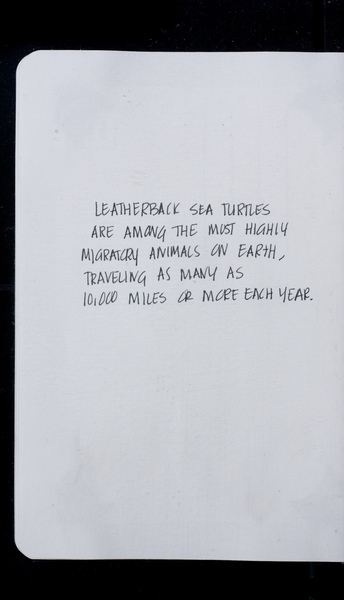 LEATHERBACK SEA TURTLES
ARE AMONG THE MOST HIGHLY
MIGRATORY ANIMALS ON EARTH,
TRAVELING AS MANY AS
10,000 MILES OR MORE EACH YEAR.